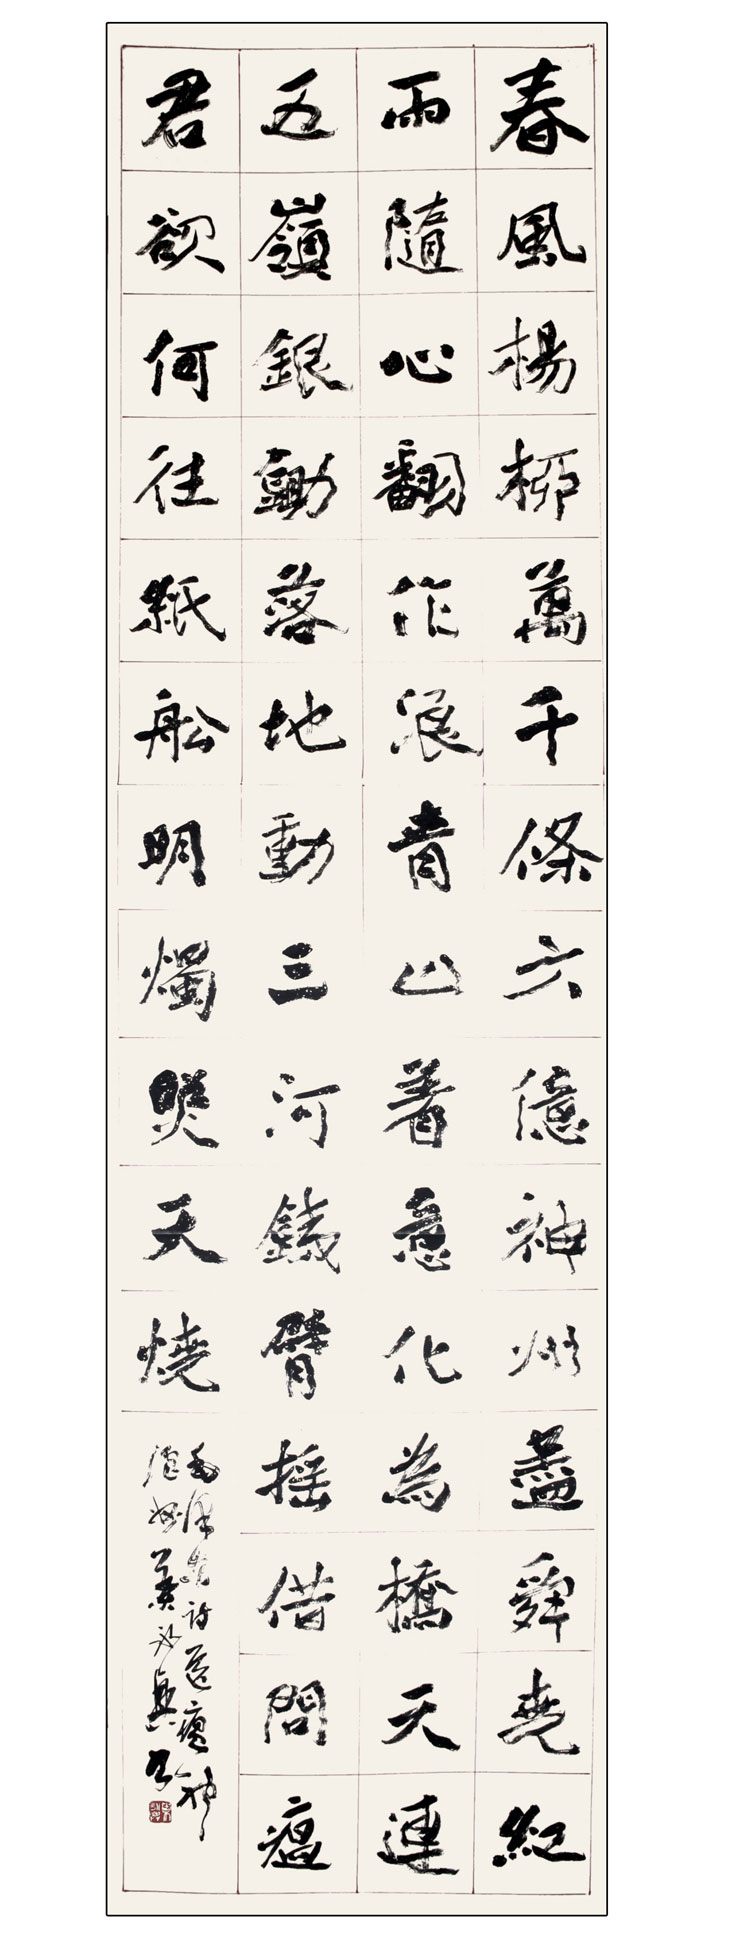 春風楊柳萬千條六億神州盡舜堯紅
雨隨心翻作浪青山着意化為橋天連
五嶺銀鋤落地動三河鐵臂搖借問瘟
君欲何往紙船明燭照天燒
毛澤東詩送瘟神